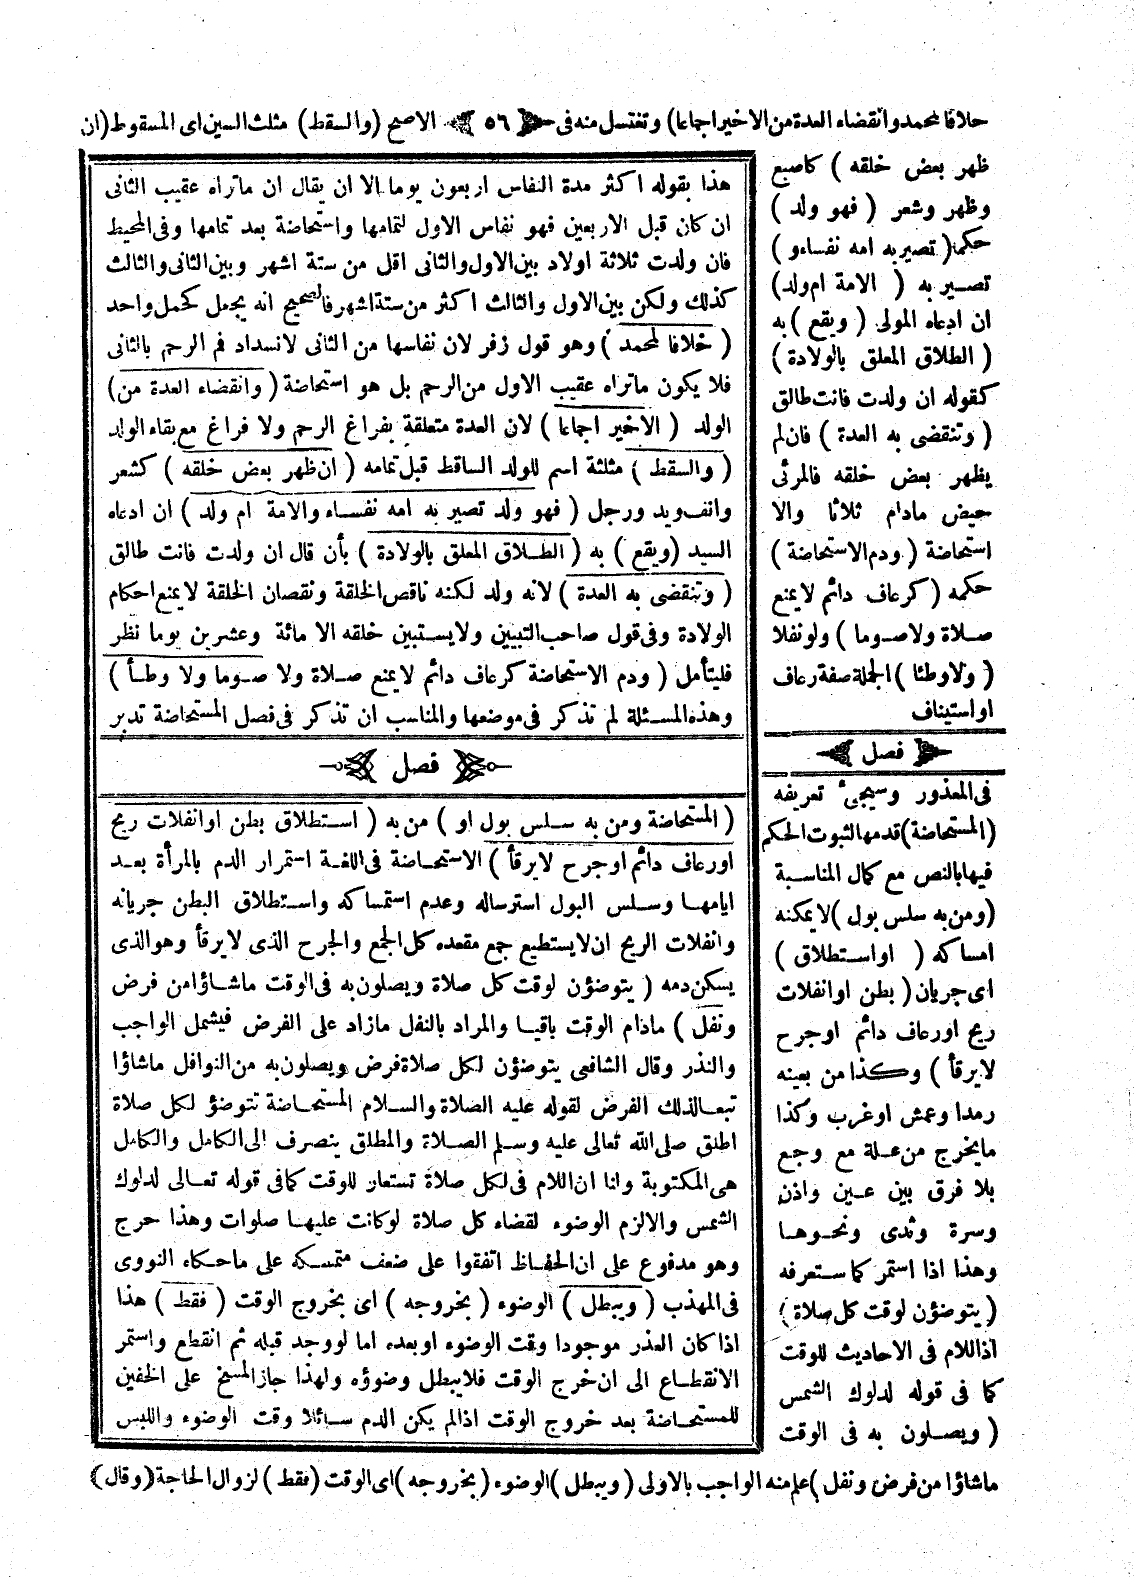 خلافا لمحمد وانقضاء العدة من الاخير اجماعا) وتغتسل منه فى ﴿ ٥٦ ﴾ الاصح (والسقط) مثلث السين اى المسقوط (ان
ظهر بعض خلقه ) كاصبع
وظهر وشعر ( فهو ولد )
حكما ( تصير به امه نفساء و )
تصير به ( الامة ام ولد)
ان ادعاه المولى ( ويقع ) به
( الطلاق المعلق بالولادة )
كقوله ان ولدت فانت طالق
( وتنقضى به العدة ) فان لم
يظهر بعض خلقه فالمرئى
حيض مادام ثلاثا والا
استحاضة ( ودم الاستحاضة )
حكمه ( كرعاف دائم لايمنع
صلاة ولا صوما ) ولو نفلا
( ولا وطئا ) الجملة صفة رعاف
او استيناف
﴿ فصل ﴾
فى المعذور وسيجئ تعريفه
(المستحاضة) قدمها لثبوت الحكم
فيها بالنص مع كمال المناسبة
(ومن به سلس بول ) لا يمكنه
امساكه ( او استطلاق )
اى جريان ( بطن او انفلات
ريح او رعاف دائم او جرح
لا يرقأ ) وكذا من بعينه
رمدا وعمش او غرب وكذا
ما يخرج من علة مع وجع
بلا فرق بين عين واذن
وسرة وثدى ونحوها
وهذا اذا استمر كما ستعرفه
( يتوضؤن لوقت كل صلاة )
اذ اللام فى الاحاديث للوقت
كما فى قوله لدلوك الشمس
( ويصلون به فى الوقت
هذا بقوله اكثر مدة النفاس اربعون يوما الا ان يقال ان ماتراه عقيب الثانى
ان كان قبل الاربعين فهو نفاس الاول لتمامها واستحاضة بعد تمامها وفى المحيط
فان ولدت ثلاثة اولاد بين الاول والثانى اقل من ستة اشهر وبين الثانى والثالث
كذلك ولكن بين الاول والثالث اكثر من ستة اشهر فالصحيح انه يجعل كحمل واحد
( خلافا لمحمد ) وهو قول زفر لان نفاسها من الثانى لانسداد فم الرحم بالثانى
فلا يكون ماتراه عقيب الاول من الرحم بل هو استحاضة ( وانقضاء العدة من)
الولد ( الاخير اجماعا ) لان العدة متعلقة بفراغ الرحم ولا فراغ مع بقاء الولد
( والسقط ) مثلثة اسم للولد الساقط قبل تمامه ( ان ظهر بعض خلقه ) كشعر
وانف ويد ورجل ( فهو ولد تصير به امه نفساء والامة ام ولد ) ان ادعاه
السيد (ويقع ) به ( الطلاق المعلق بالولادة ) بأن قال ان ولدت فانت طالق
( وتنقضى به العدة ) لانه ولد لكنه ناقص الخلقة ونقصان الخلقة لا يمنع احكام
الولادة وفى قول صاحب التبيين ولا يستبين خلقه الا مائة وعشرين يوما نظر
فليتأمل ( ودم الاستحاضة كرعاف دائم لا يمنع صلاة ولا صوما ولا وطأ )
وهذه المسئلة لم تذكر فى موضعها والمناسب ان تذكر فى فصل المستحاضة تدبر
﴿ فصل ﴾
( المستحاضة ومن به سلس بول او ) من به ( استطلاق بطن او انفلات ريح
او رعاف دائم او جرح لا يرقأ ) الاستحاضة فى اللغة استمرار الدم بالمرأة بعد
ايامها وسلس البول استرساله وعدم استمساكه واستطلاق البطن جريانه
وانفلات الريح ان لا يستطيع جمع مقعده كل الجمع والجرح الذى لا يرقأ وهو الذى
يسكن دمه ( يتوضؤن لوقت كل صلاة ويصلون به فى الوقت ماشاؤا من فرض
ونفل ) مادام الوقت باقيا والمراد بالنفل مازاد على الفرض فيشمل الواجب
والنذر وقال الشافعى يتوضؤن لكل صلاة فرض ويصلون به من النوافل ماشاؤا
تبعا لذلك الفرض لقوله عليه الصلاة والسلام المستحاضة تتوضؤ لكل صلاة
اطلق صلى الله تعالى عليه وسلم الصلاة والمطلق ينصرف الى الكامل والكامل
هى المكتوبة ولنا ان اللام فى لكل صلاة تستعار للوقت كما فى قوله تعالى لدلوك
الشمس والالزم الوضوء لقضاء كل صلاة لو كانت عليها صلوات وهذا حرج
وهو مدفوع على ان الحفاظ اتفقوا على ضعف متمسكه على ماحكاه النووى
فى المهذب ( ويبطل ) الوضوء ( بخروجه ) اى بخروج الوقت ( فقط ) هذا
اذا كان العذر موجودا وقت الوضوء او بعده اما لو وجد قبله ثم انقطع واستمر
الانقطاع الى ان خرج الوقت فلا يبطل وضوؤه ولهذا جاز المسح على الخفين
للمستحاضة بعد خروج الوقت اذا لم يكن الدم سائلا وقت الوضوء واللبس
ماشاؤا من فرض ونفل ) علم منه الواجب بالاولى ( ويبطل ) الوضوء ( بخروجه ) اى الوقت ( فقط ) لزوال الحاجة (وقال)